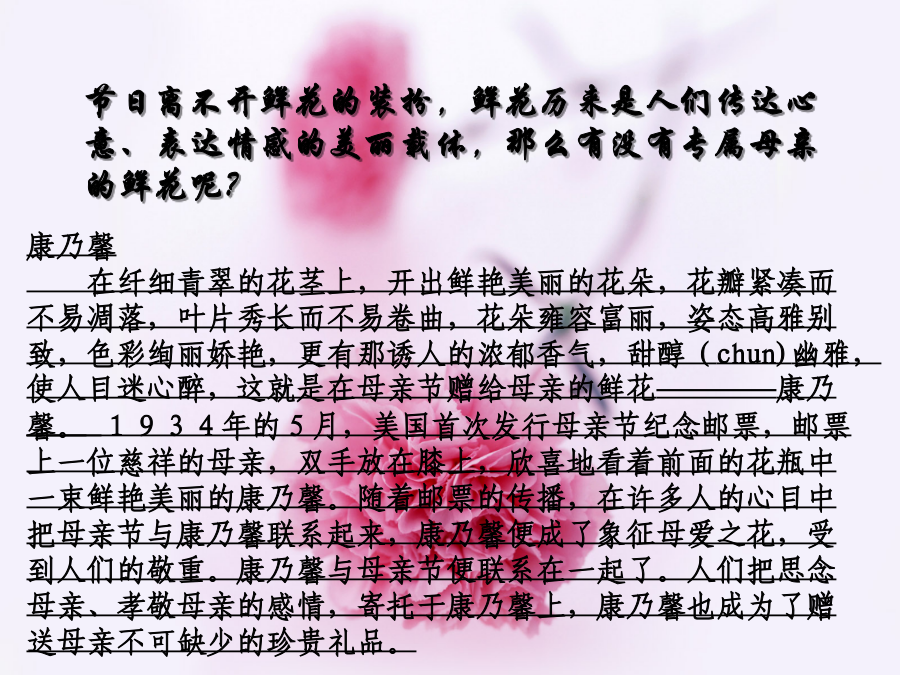 节日离不开鲜花的装扮，鲜花历来是人们传达心
意、表达情感的美丽载体，那么有没有专属母亲
的鲜花呢？
康乃馨
在纤细青翠的花茎上，开出鲜艳美丽的花朵，花瓣紧凑而
不易凋落，叶片秀长而不易卷曲，花朵雍容富丽，姿态高雅别
致，色彩绚丽娇艳，更有那诱人的浓郁香气，甜醇（chun)幽雅，
使人目迷心醉，这就是在母亲节赠给母亲的鲜花————康乃
馨。 １９３４年的５月，美国首次发行母亲节纪念邮票，邮票
上一位慈祥的母亲，双手放在膝上，欣喜地看着前面的花瓶中
一束鲜艳美丽的康乃馨。随着邮票的传播，在许多人的心目中
把母亲节与康乃馨联系起来，康乃馨便成了象征母爱之花，受
到人们的敬重。康乃馨与母亲节便联系在一起了。人们把思念
母亲、孝敬母亲的感情，寄托于康乃馨上，康乃馨也成为了赠
送母亲不可缺少的珍贵礼品。